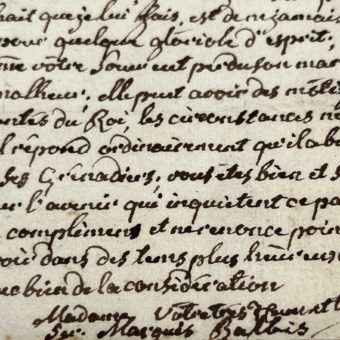 hait que je lui fais, est de ne jamais
pour quelque gloriole d'esprit;
votre Soeur ent perdu son mar
malheur; elle peut avoir des
du Roi, les circonstances ne
répond ordinairement qu'il a be
ses Grenadiers; vous êtes bien et
l'avenir qui inquietent ce pa
compliment et ne renonce poin
dans des tems plus heureux
bien de la considération
Madame Votre très
Marquis Balbis